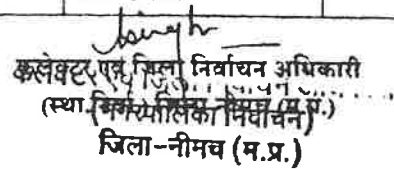 कलेक्टर एवं जिला निर्वाचन अधिकारी
(स्था. नगरपालिका निर्वाचन)
जिला-नीमच (म.प्र.)